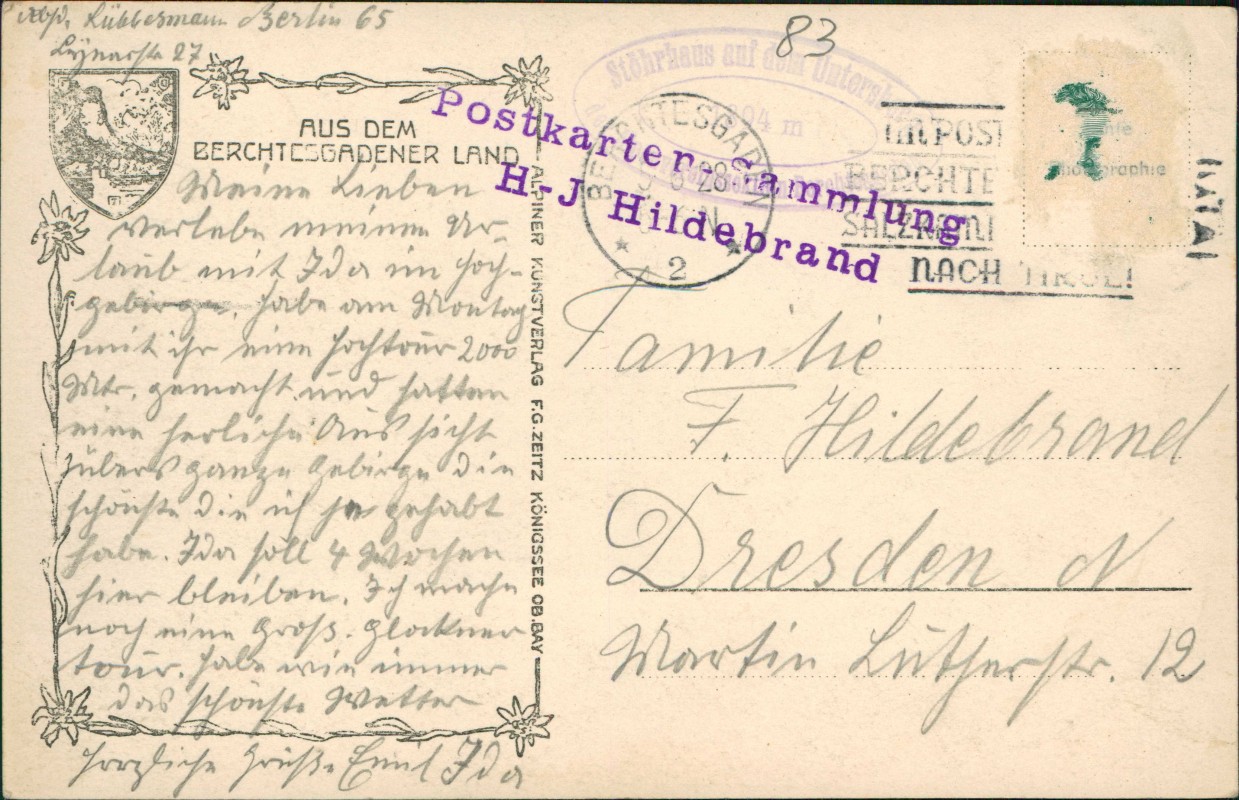 Lübbesmann Berlin 65
Lynarstr 27
83
AUS DEM
BERCHTESGADENER LAND
Meine Lieben
verlebe meinen Ur-
laub mit Ida im Hoch-
gebirge. habe am Montag
mit ihr eine Hochtour 2000
Mtr. gemacht und hatten
eine herliche Aussicht
übers ganze Gebirge die
schönste die ich je gehabt
habe. Ida soll 4 Wochen
hier bleiben. Ich mache
noch eine Groß. Glockner
tour. habe wie immer
das schönste Wetter
Herzliche Grüße Emil Ida
ALPINER KUNSTVERLAG F.G. ZEITZ KÖNIGSSEE OB. BAY
Stöhrhaus auf dem Untersb
Postkarten-Sammlung
H-J Hildebrand
BERCHTESGADEN
28
2
IM POST
BERCHTE
SALZ
NACH TIROL!
Familie
F. Hildebrand
Dresden N
Martin Lutherstr. 12